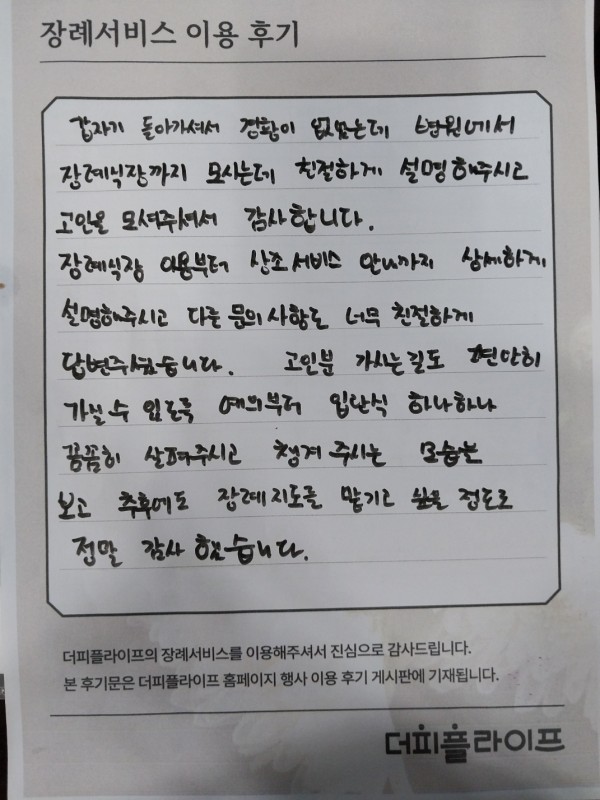 장례서비스 이용 후기
갑자기 돌아가셔서 경황이 없었는데 병원에서
장례식장까지 모시는데 친절하게 설명해주시고
고인을 모셔주셔서 감사합니다.
장례식장 이용부터 상조서비스 안내까지 상세하게
설명해주시고 다른 문의사항도 너무 친절하게
답변주셨습니다. 고인분 가시는길도 편안히
가실 수 있도록 예의부터 입관식 하나하나
꼼꼼히 살펴주시고 챙겨주시는 모습는
보고 추후에도 장례지도를 맡기고 싶을 정도로
정말 감사했습니다.
더피플라이프의 장례서비스를 이용해주셔서 진심으로 감사드립니다.
본 후기문은 더피플라이프 홈페이지 행사 이용 후기 게시판에 기재됩니다.
더피플라이프